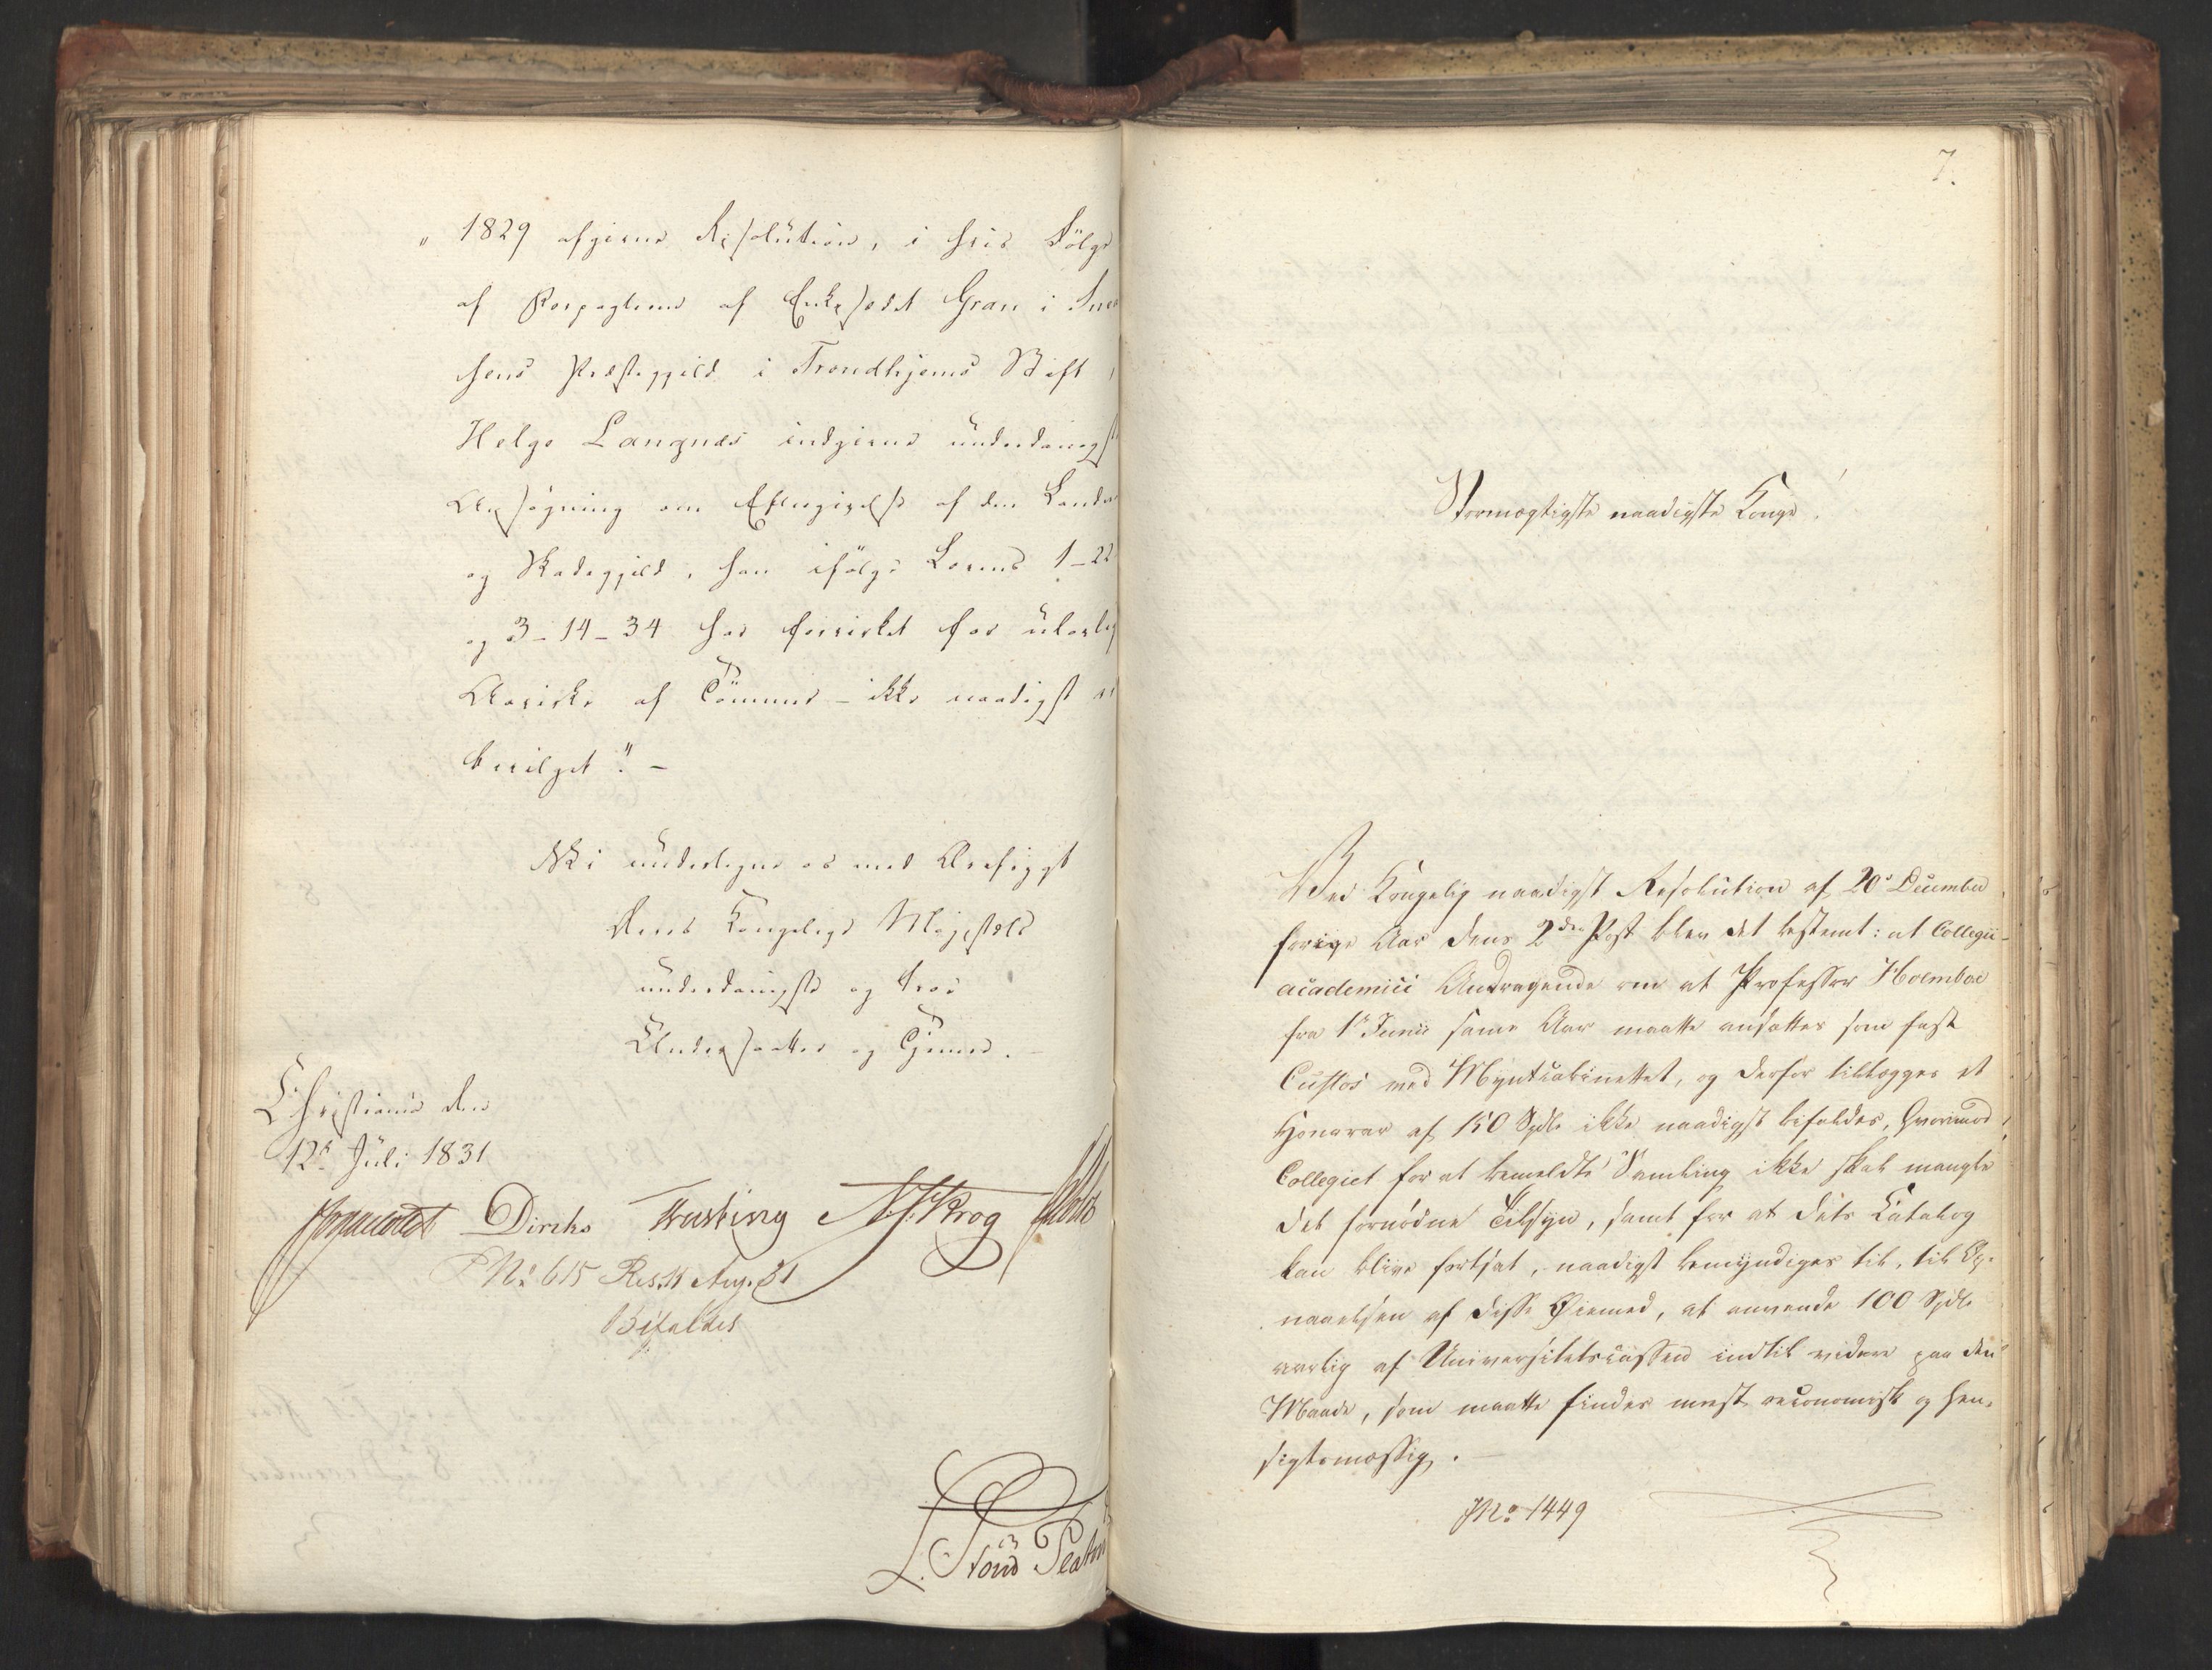 " 1829 afgivne Resolution, i hvis Følge
af Forpagteren af Enkesædet Gran i Snaa-
sens Præstegjeld i Trondhjems Stift,
Helge Langnæs indgivne underdanigst
Ansøgning om Eftergivelse af den Landn
og Skadegjeld, han ifølge Lovens 1-22
og 3-14-34 har forvirket for ulovlig
Anvirke af Tømmer - ikke naadigst er
bevilget". -
Vi undertegne os med Ærefrygt
Deres Kongelige Majestæts
underdanigste og troe
Undersaatter og Tjenere.
Christiania den
12te Juli 1831
Diriks Krog
No. 615 Res. 11 Aug. 31
Bifaldes
7.
Stormægtigste naadigste Konge!
Ved Kongelig naadigst Resolution af 20de December
forrige Aar dens 2den Post blev det bestemt: at Collegii
academici Andragende om at Professor Holmboe
fra 1ste Junii samme Aar maatte ansættes som fast
Custos ved Myntcabinettet, og derfor tillægges et
Honorar af 150 Spdlr ikke naadigst bifaldes, hvorimod
Collegiet for at bemeldte Samling ikke skal mangle
det fornødne Tilsyn, samt for at dets Catalog
kan blive fortsat, naadigst bemyndiges til, til Op-
naaelsen af disse Øiemed, at anvende 100 Spdlr
aarlig af Universitetscassen indtil videre paa den
Maade, som maatte findes meest oeconomisk og hen-
sigtsmæssig. -
JNo. 1449